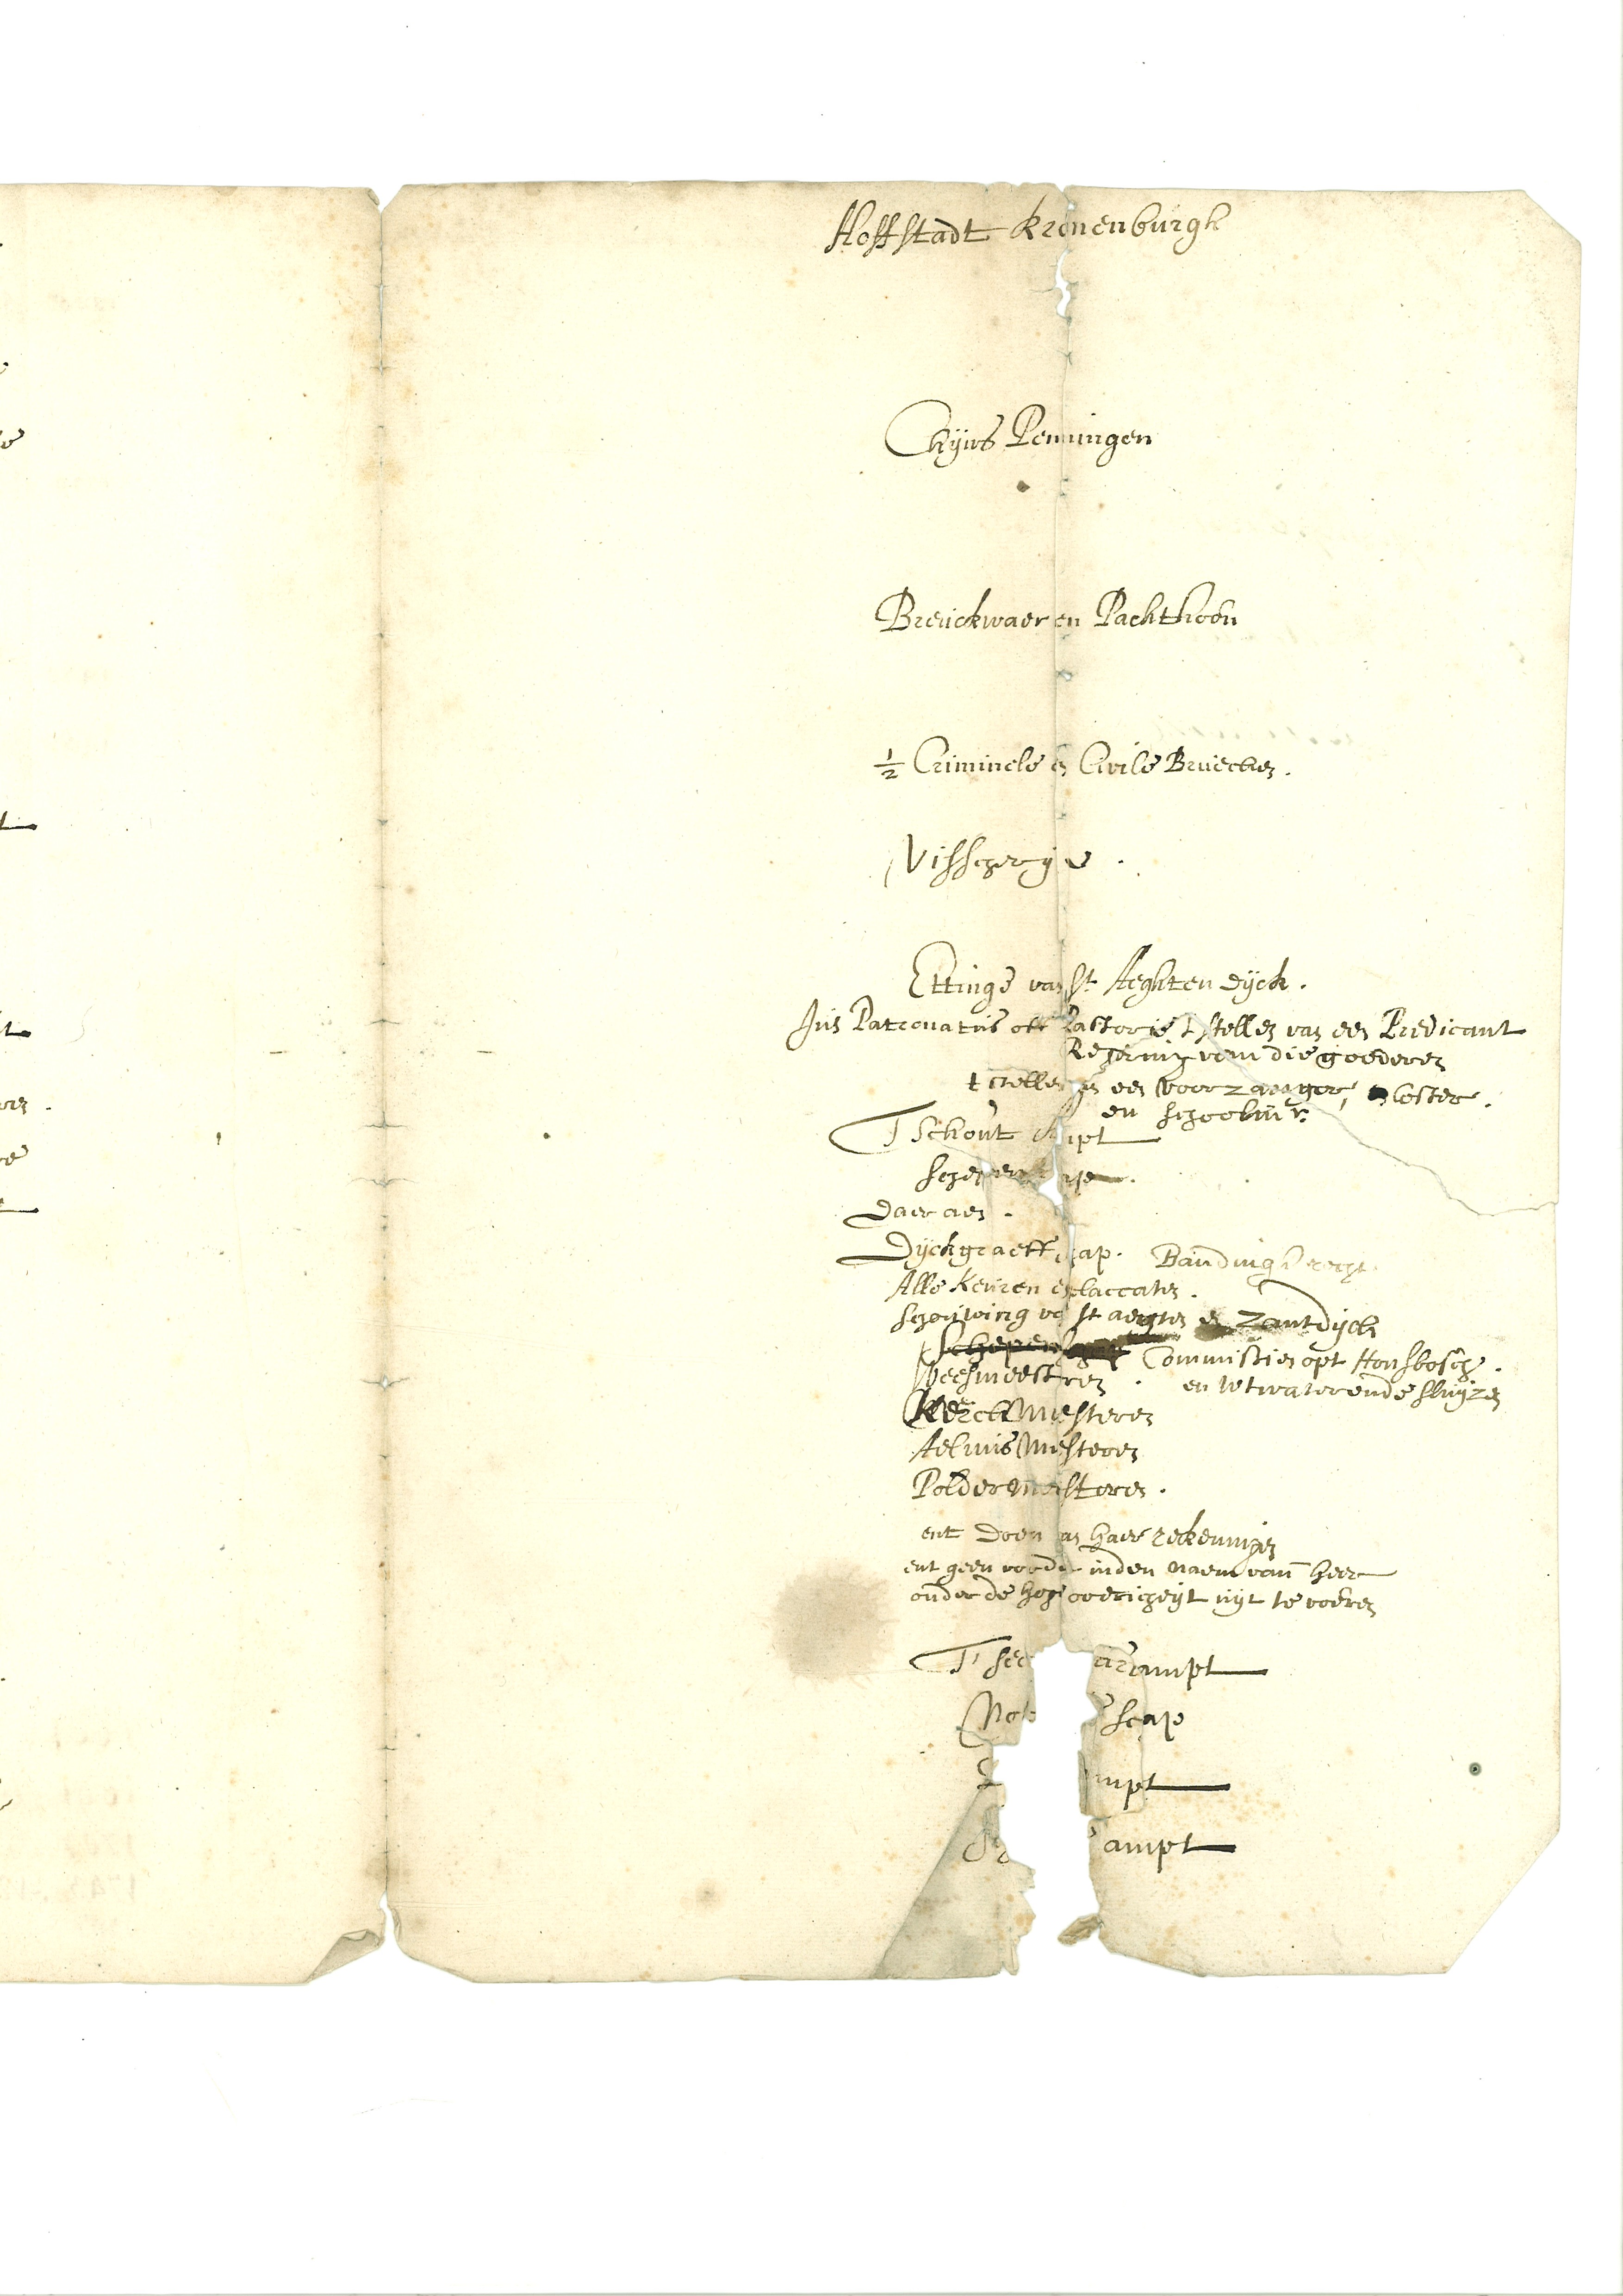 Hoffstadt kronenburgh
Chijns Penningen
Breuckwaer en Pachthoen
½ Criminele en Civile Bruecken.
Visscherije.
Ettinge van St Aeghtendyck.
Jus Patronatus oft Pastorie t stellen van een Predicant
Regering van die goederen
t stellen van een voorzanger, en Coster.
en schoolmr.
T schout Ampt
Schependom
daer aen.
Dyckgraeffscap. Bandinge recht.
Alle keuren en placcaten.
schouwing van St aegten en Zantdijck
Commissien opt Honsbosch.
Weesmeesteren.
en wtwaterende sluijzen
Kerck Meesteren
Aelmis Meesteren
Poldermeesteren.
ent doen van haer rekeningen
ent geen voorder inden naem vann heer
onder de hoge overicheyt uyt te voeren
T' sec arisampt
Not scap
mpt
ampt